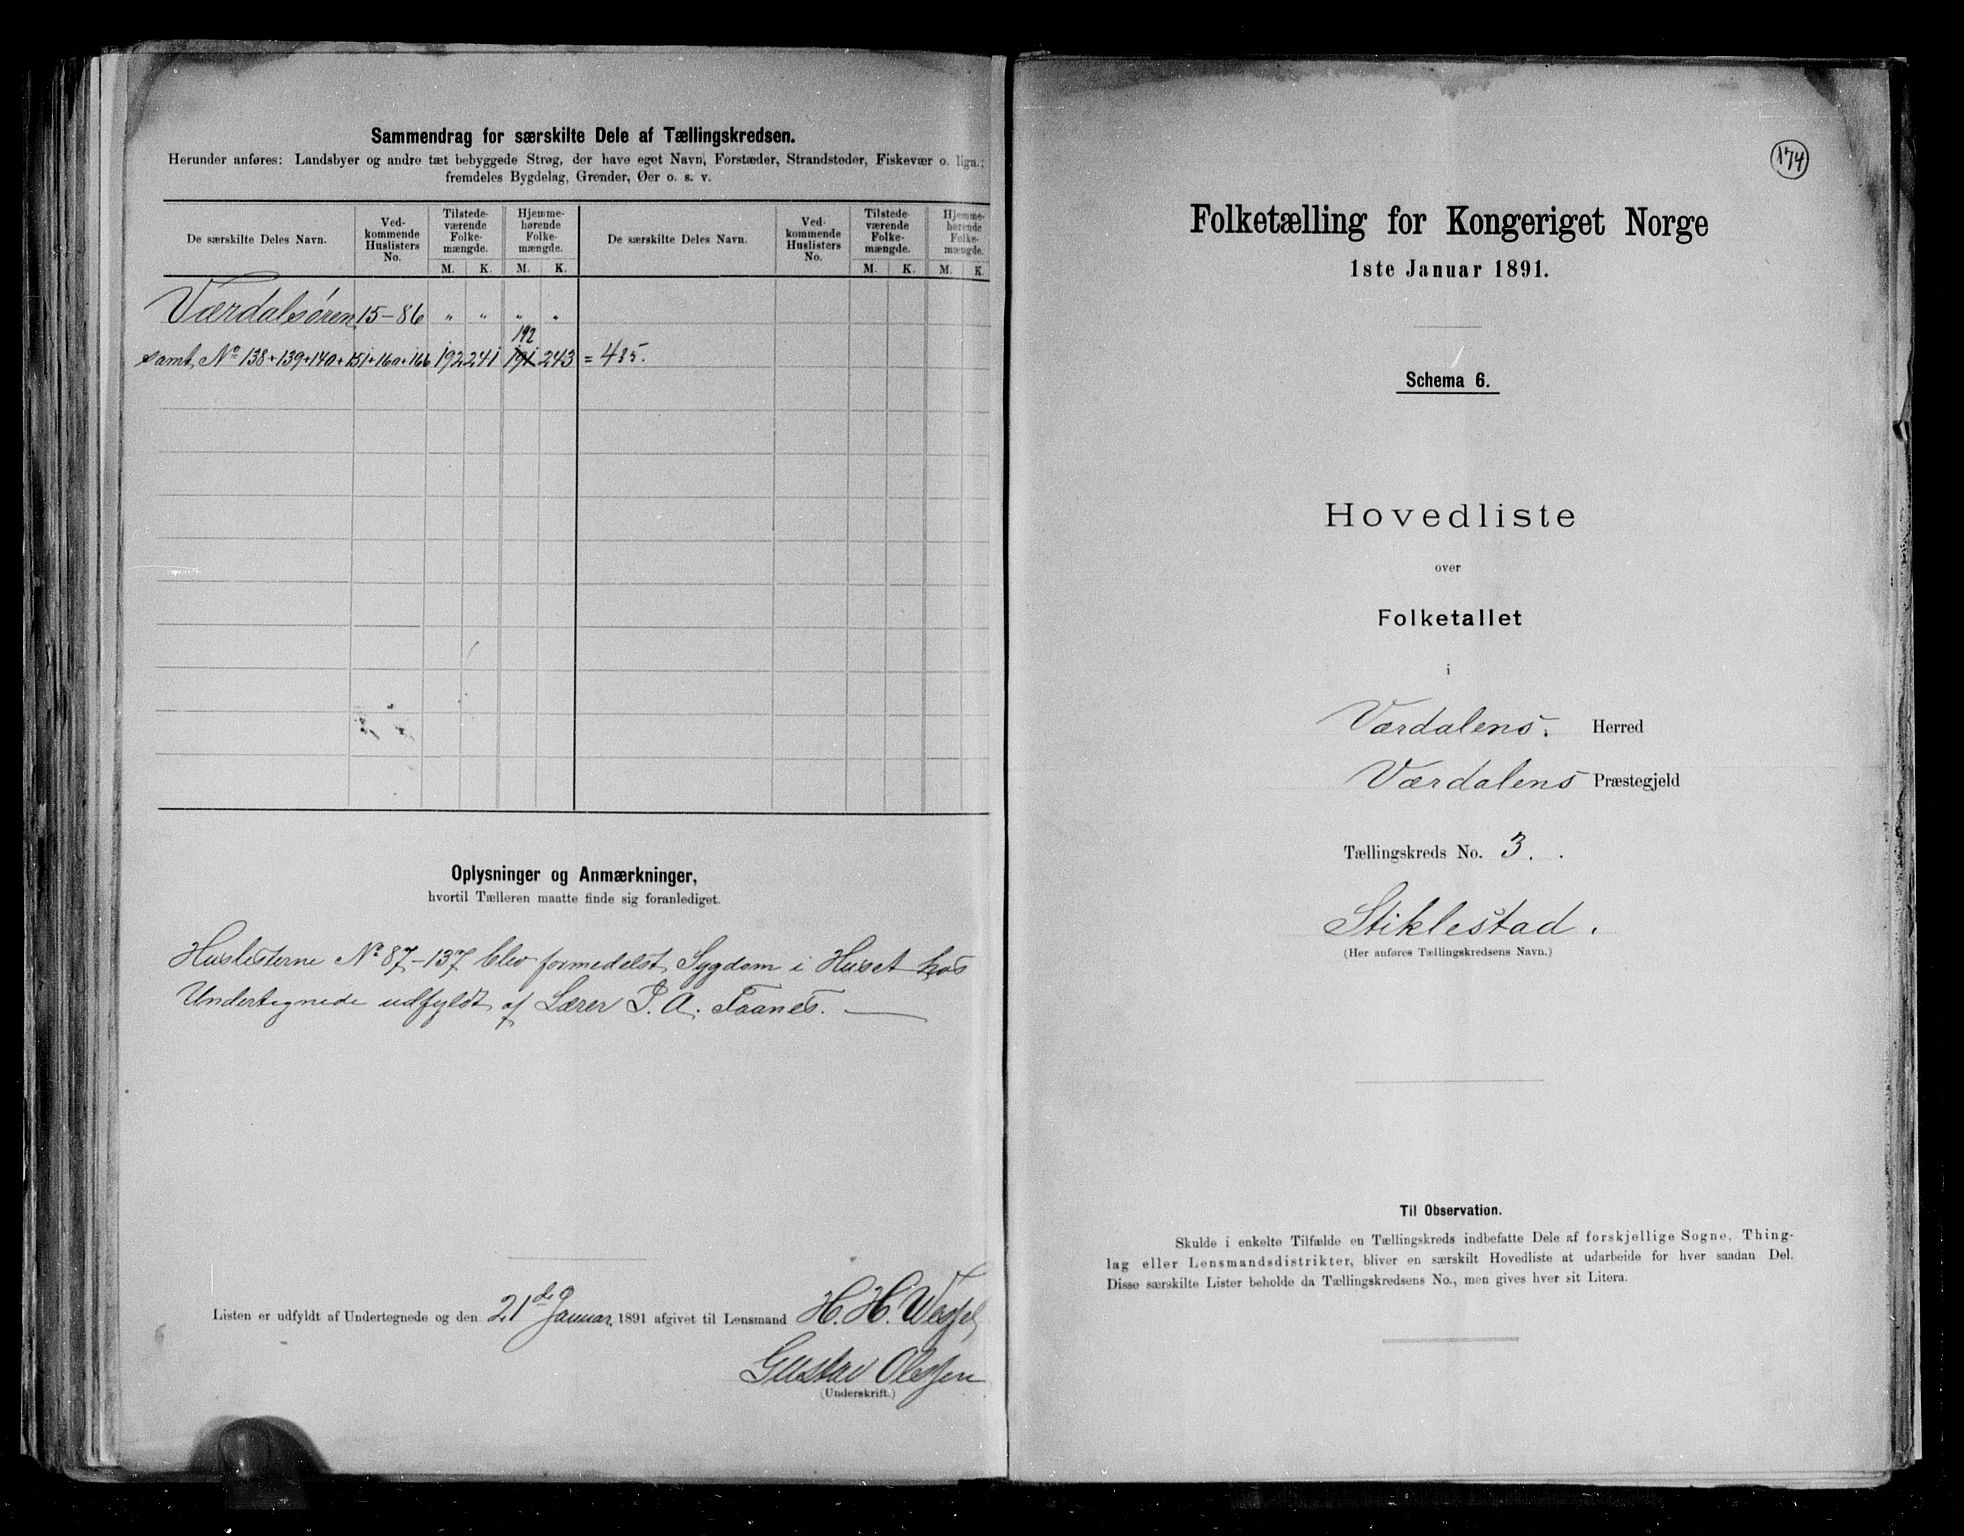 Sammendrag for særskilte Dele af Tællingskredsen.
Herunder anføres: Landsbyer og andre tæt bebyggede Strøg, der have eget Navn, Forstæder, Strandsteder, Fiskevær o. lign.;
fremdeles Bygdelag, Grender, Øer o. s. v.
De særskilte Deles Navn. Ved-kommende Huslisters No. Tilstede-værende Folke-mængde. Hjemme-hørende Folke-mængde. De særskilte Deles Navn. Ved-kommende Huslisters No. Tilstede-værende Folke-mængde. Hjemme-hørende Folke-mængde.
M. K. M. K. M. K. M. K.
Værdalsøren 15-86 " " " "
192
samt No 138+139+140+151+160+166 192 241 191 243 = 435.
Oplysninger og Anmærkninger,
hvortil Tælleren maatte finde sig foranlediget.
Huslisterne No 87-137 blev formedelst Sygdom i Huset hos
Undertegnede udfyldt af Lærer P. A. Faanes.
Listen er udfyldt af Undertegnede og den 21de Januar 1891 afgivet til Lensmand H. H. Wessel
Gustav Olssen
(Underskrift.)
174
Folketælling for Kongeriget Norge
1ste Januar 1891.
Schema 6.
Hovedliste
over
Folketallet
i
Værdalens. Herred
Værdalens Præstegjeld
Tællingskreds No. 3.
Stiklestad.
(Her anføres Tællingskredsens Navn.)
Til Observation.
Skulde i enkelte Tilfælde en Tællingskreds indbefatte Dele af forskjellige Sogne, Thing-
lag eller Lensmandsdistrikter, bliver en særskilt Hovedliste at udarbeide for hver saadan Del.
Disse særskilte Lister beholde da Tællingskredsens No., men gives hver sit Litera.